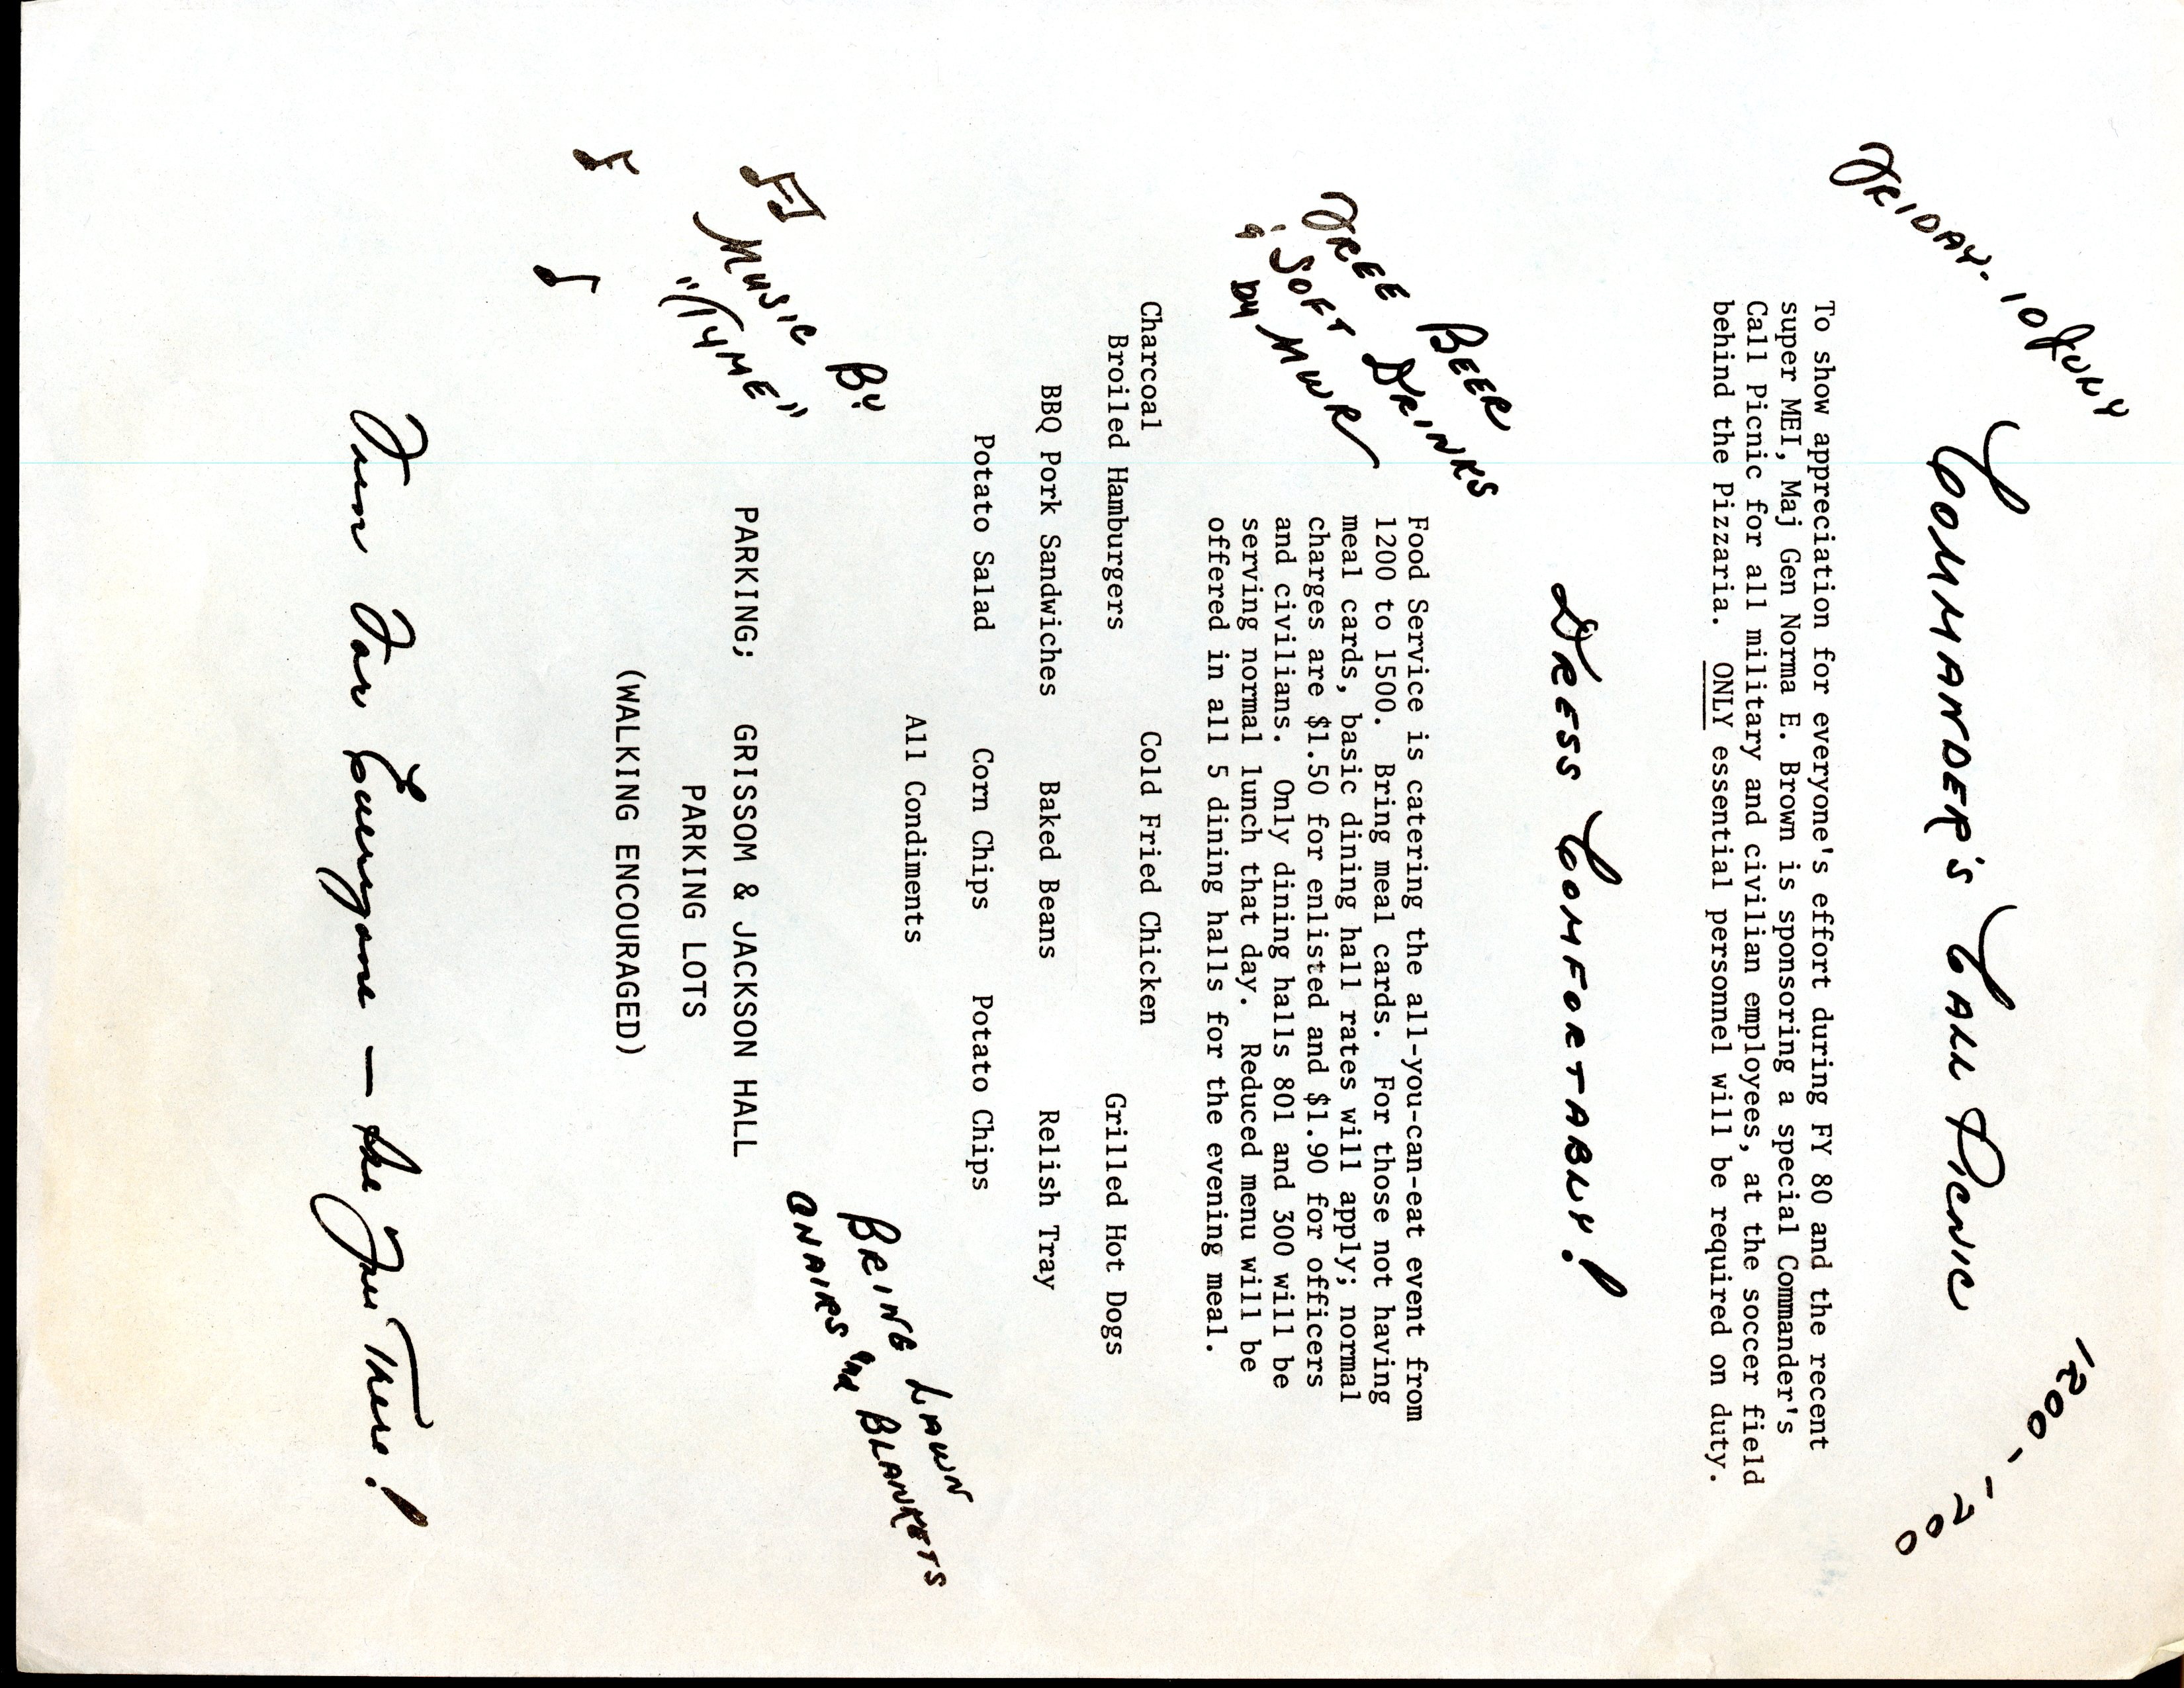 FRIDAY- 10 JULY
1200 - 1700
COMMANDER'S CALL PICNIC
To show appreciation for everyone's effort during FY 80 and the recent
super MEI, Maj Gen Norma E. Brown is sponsoring a special Commander's
Call Picnic for all military and civilian employees, at the soccer field
behind the Pizzaria. ONLY essential personnel will be required on duty.
DRESS COMFORTABLY!
FREE BEER
& SOFT DRINKS
by MWR
Food Service is catering the all-you-can-eat event from
1200 to 1500. Bring meal cards. For those not having
meal cards, basic dining hall rates will apply; normal
charges are $1.50 for enlisted and $1.90 for officers
and civilians. Only dining halls 801 and 300 will be
serving normal lunch that day. Reduced menu will be
offered in all 5 dining halls for the evening meal.
Charcoal Cold Fried Chicken
Broiled Hamburgers Grilled Hot Dogs
BBQ Pork Sandwiches Baked Beans Relish Tray
Potato Salad Corn Chips Potato Chips
All Condiments
BRING LAWN
CHAIRS and BLANKETS
MUSIC By
"TYME"
PARKING; GRISSOM & JACKSON HALL
PARKING LOTS
(WALKING ENCOURAGED)
Fun For Everyone — See You There!